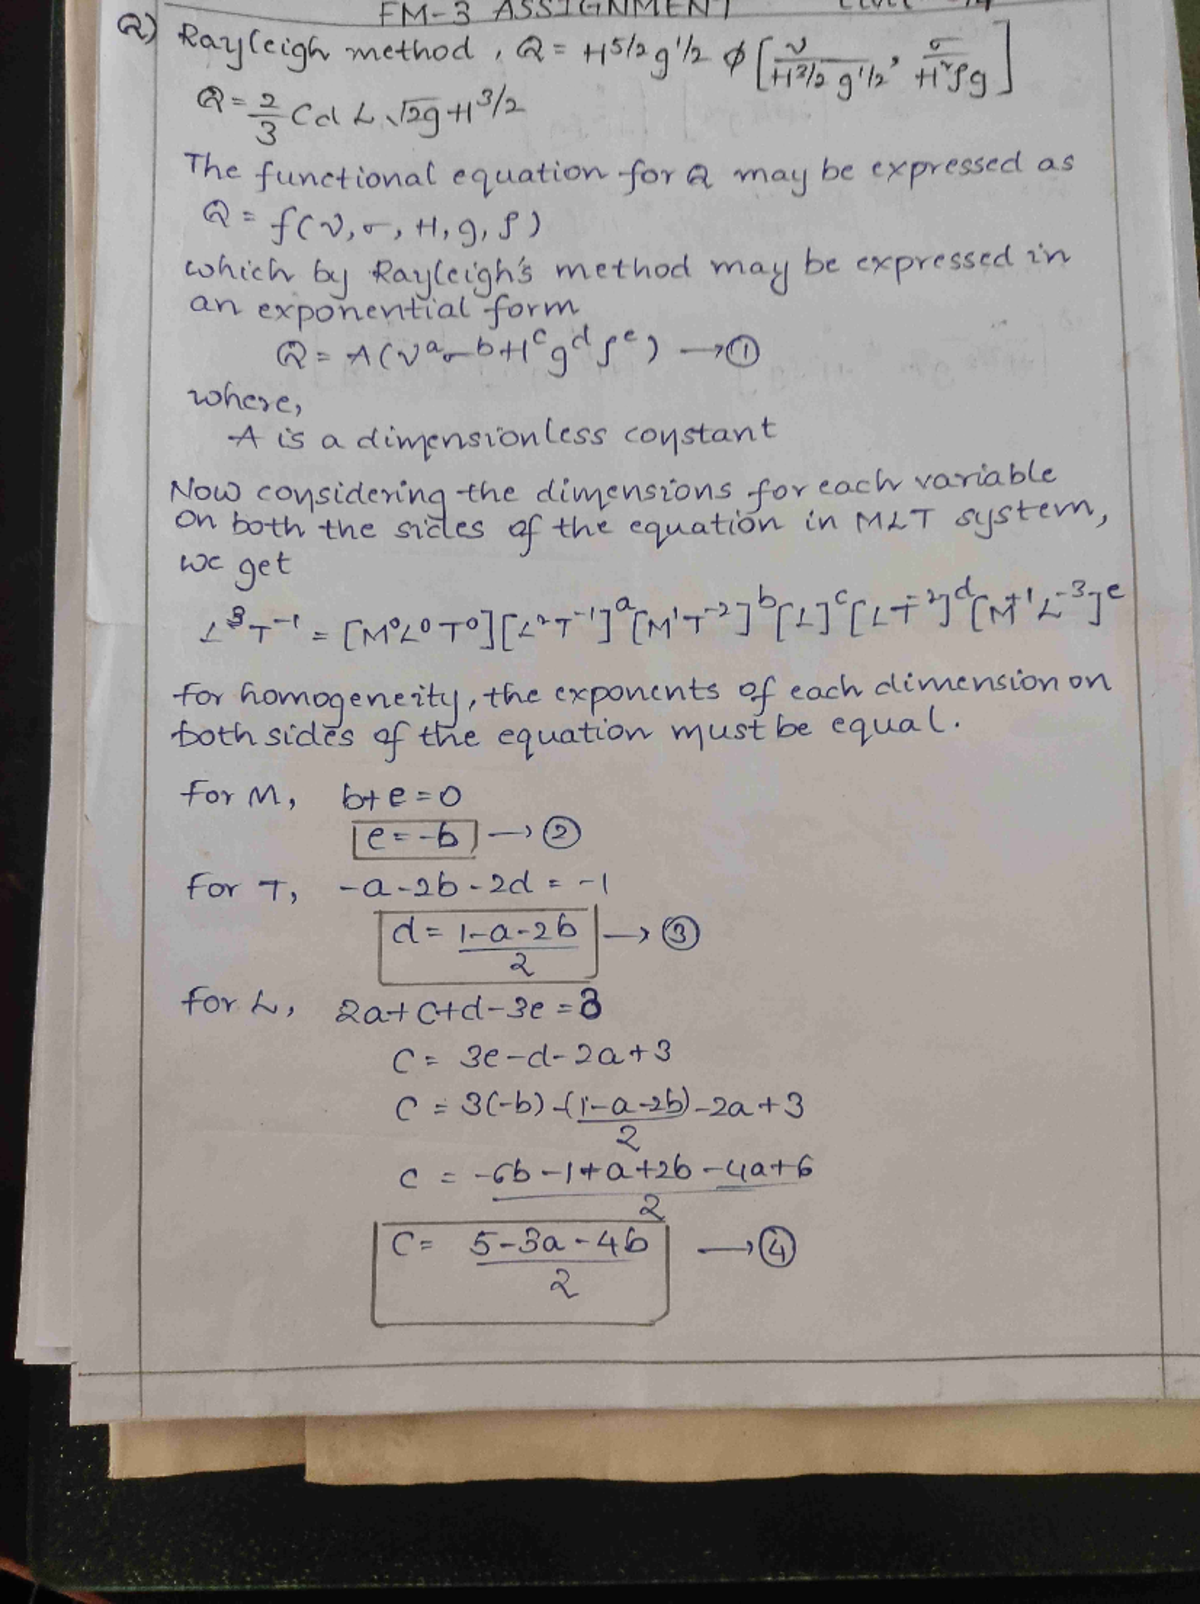 FM-3 ASSIGNMENT
Q) Rayleigh method, Q = H^5/2 g^1/2 ϕ [ν/H^3/2 g^1/2, σ/H²ρg]
Q = 2/3 Cd L √2g H^3/2
The functional equation for Q may be expressed as
Q = f(ν, σ, H, g, ρ)
which by Rayleigh's method may be expressed in
an exponential form
Q = A(ν^a σ^b H^c g^d ρ^e) → ①
where,
A is a dimensionless constant
Now considering the dimensions for each variable
on both the sides of the equation in MLT system,
we get
L³T⁻¹ = [M⁰L⁰T⁰][L²T⁻¹]^a[M¹T⁻²]^b[L]^c[LT⁻²]^d[M⁺¹L⁻³]^e
for homogeneity, the exponents of each dimension on
both sides of the equation must be equal.
for M, b+e=0
e=-b → ②
for T, -a-2b-2d = -1
d = 1-a-2b/2 → ③
for L, 2a+c+d-3e = 3
c = 3e-d-2a+3
c = 3(-b)-(1-a-2b)/2-2a+3
c = -6b-1+a+2b-4a+6/2
c = 5-3a-4b/2 → ④